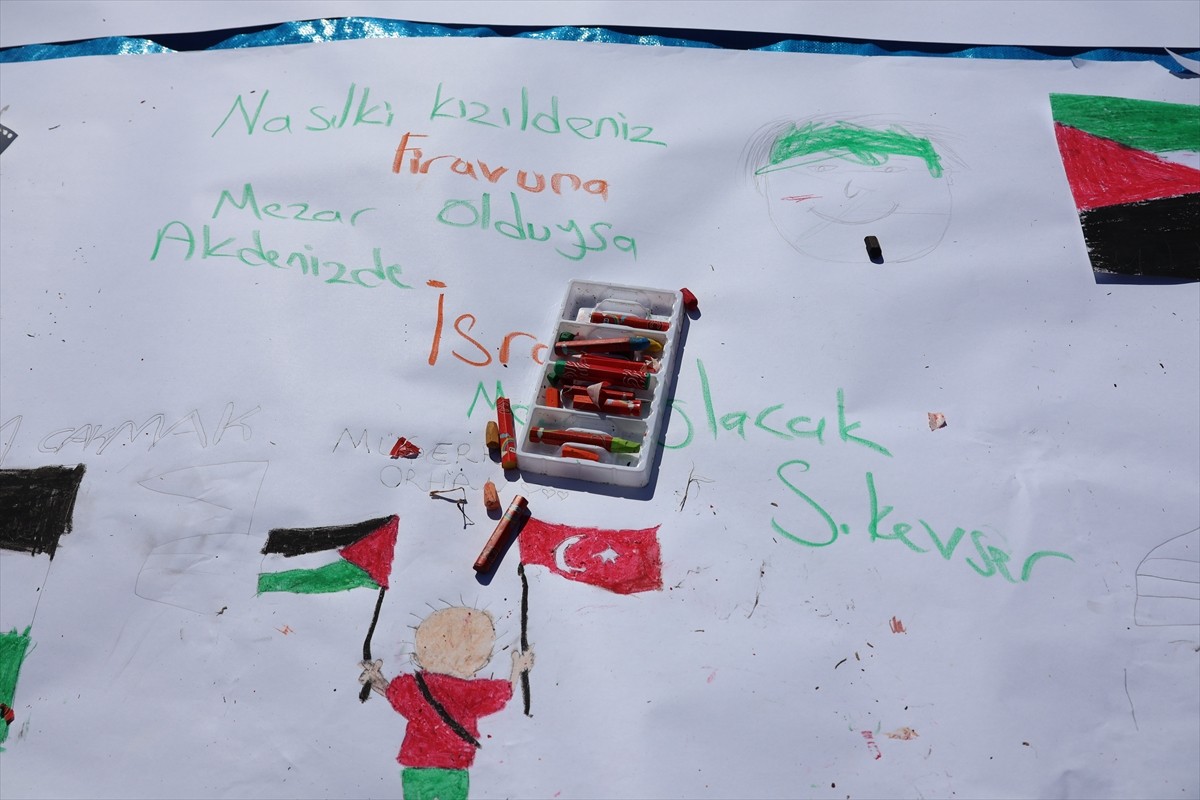 Nasılki kızıldeniz
Firavuna
Mezar olduysa
Akdenizde
İsra
olacak
S.kevser
CAKMAK